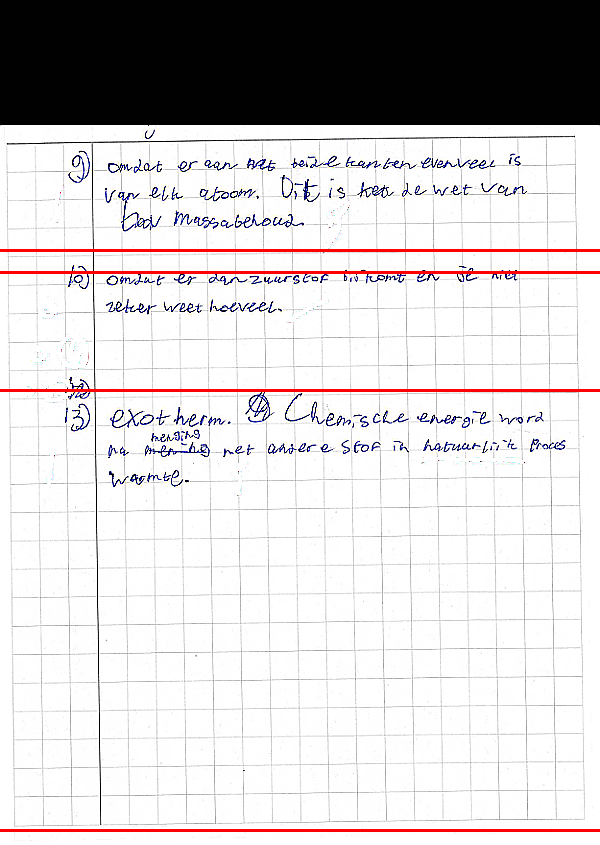 9) omdat er aan beide kanten evenveel is
van elk atoom. Dit is de wet van
massabehoud.
10) omdat er dan zuurstof bij komt en je niet
zeker weet hoeveel.
13) exotherm. Chemische energie word
na menging met andere stof in natuurlijk proces
warmte.